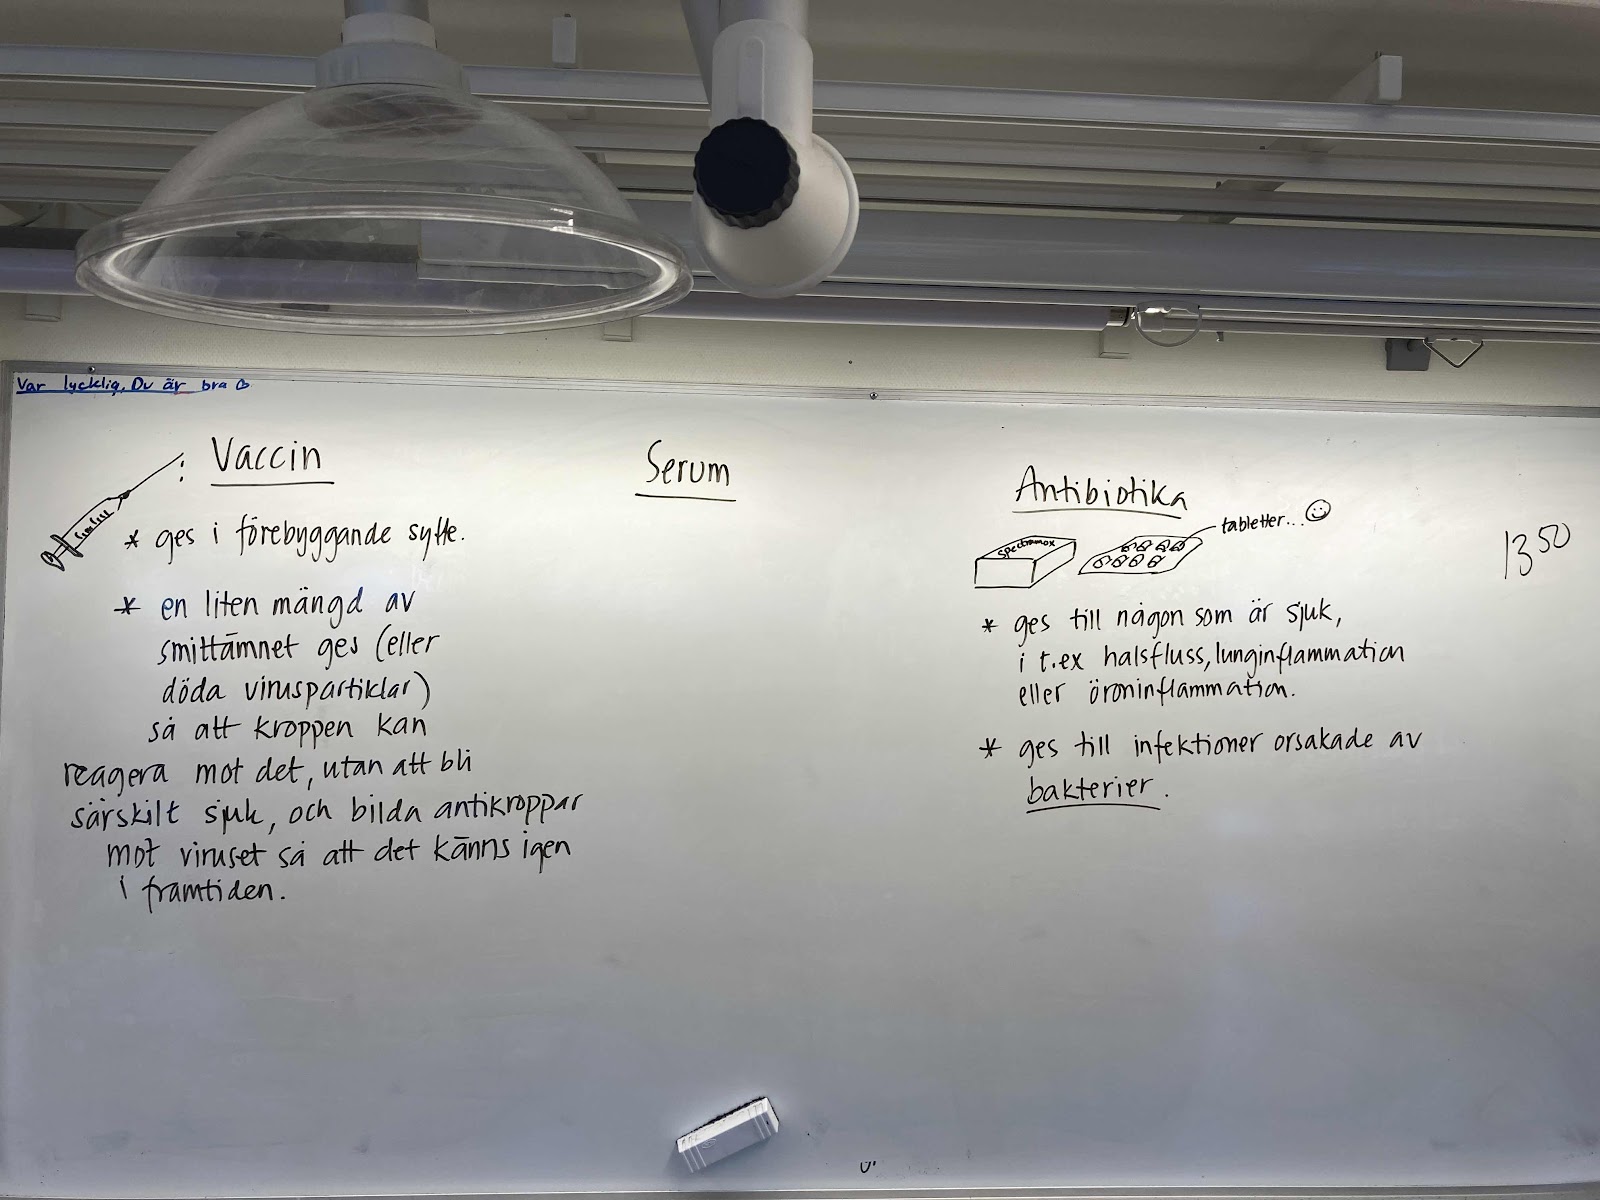 Var lycklig. Du är bra
Vaccin
* ges i förebyggande syfte.
* en liten mängd av
smittämnet ges (eller
döda viruspartiklar)
så att kroppen kan
reagera mot det, utan att bli
särskilt sjuk, och bilda antikroppar
mot viruset så att det känns igen
i framtiden.
Serum
Antibiotika
Spectramox
tabletter...
* ges till någon som är sjuk,
i t.ex halsfluss, lunginflammation
eller öroninflammation.
* ges till infektioner orsakade av
bakterier.
13 50